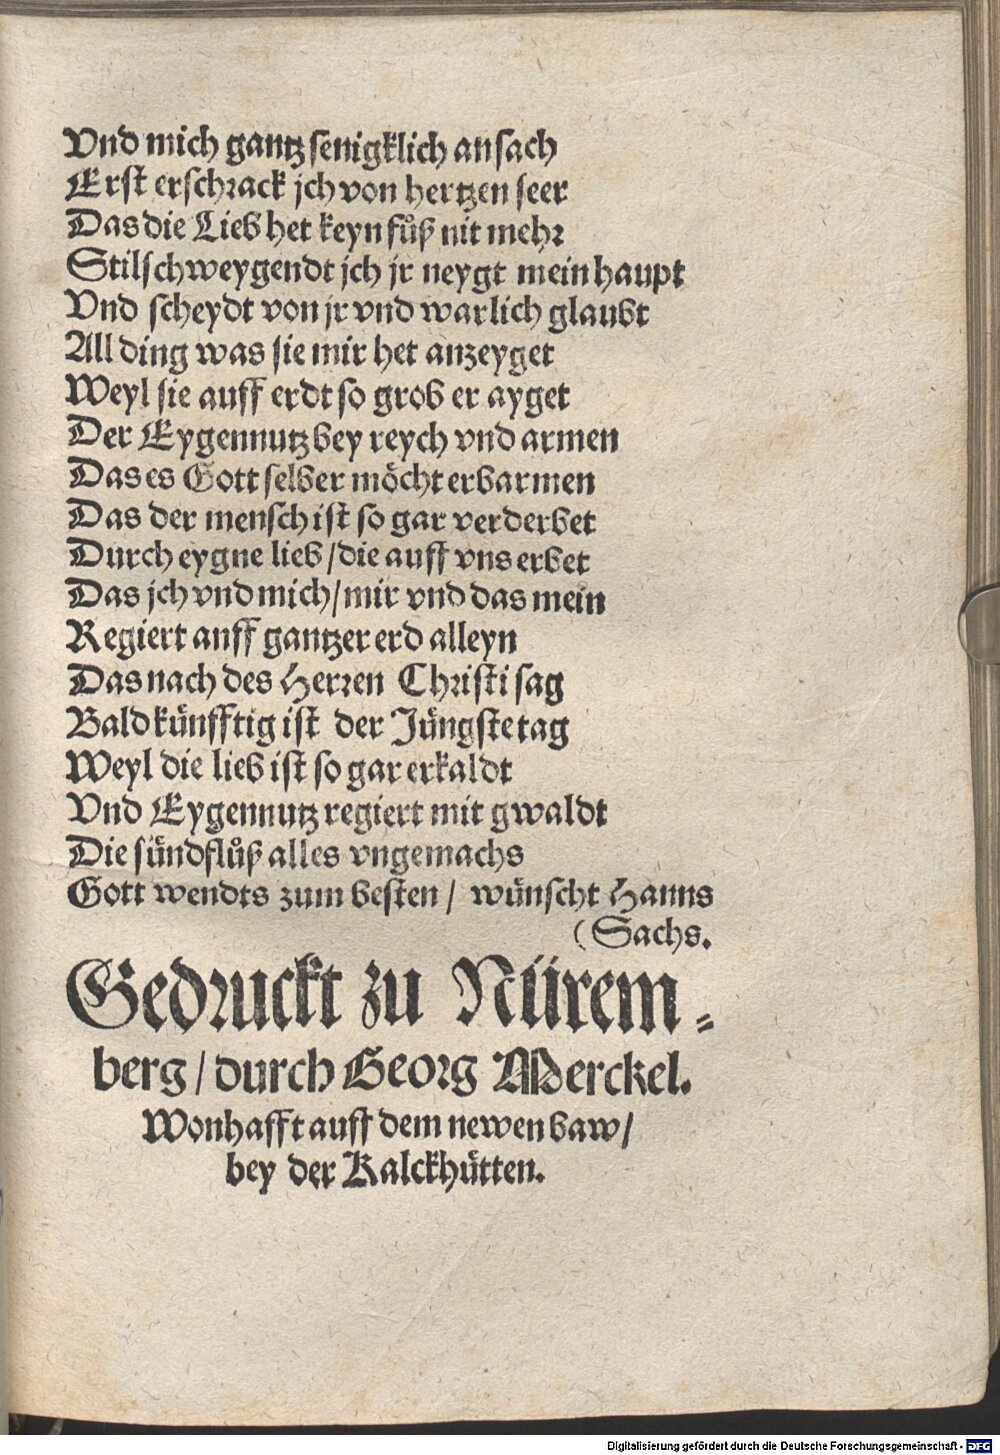 Vnd mich gantz senigklich ansach
Erst erschrack jch von hertzen seer
Das die Lieb het keyn fůß nit mehr
Stilschweygendt jch jr neygt mein haupt
Vnd scheydt von jr vnd warlich glaubt
All ding was sie mir het anzeyget
Weyl sie auff erdt so grob er ayget
Der Eygennutz bey reych vnd armen
Das es Gott selber möcht erbarmen
Das der mensch ist so gar verderbet
Durch eygne lieb / die auff vns erbet
Das jch vnd mich / mir vnd das mein
Regiert anff gantzer erd alleyn
Das nach des Herren Christi sag
Bald künfftig ist der Jüngste tag
Weyl die lieb ist so gar erkaldt
Vnd Eygennutz regiert mit gwaldt
Die sündflůß alles vngemachs
Gott wendts zum besten / wünscht Hanns
(Sachs.
Gedruckt zu Nürem⸗
berg / durch Georg Merckel.
Wonhafft auff dem newen baw /
bey der Kalckhütten.
Digitalisierung gefördert durch die Deutsche Forschungsgemeinschaft - DFG